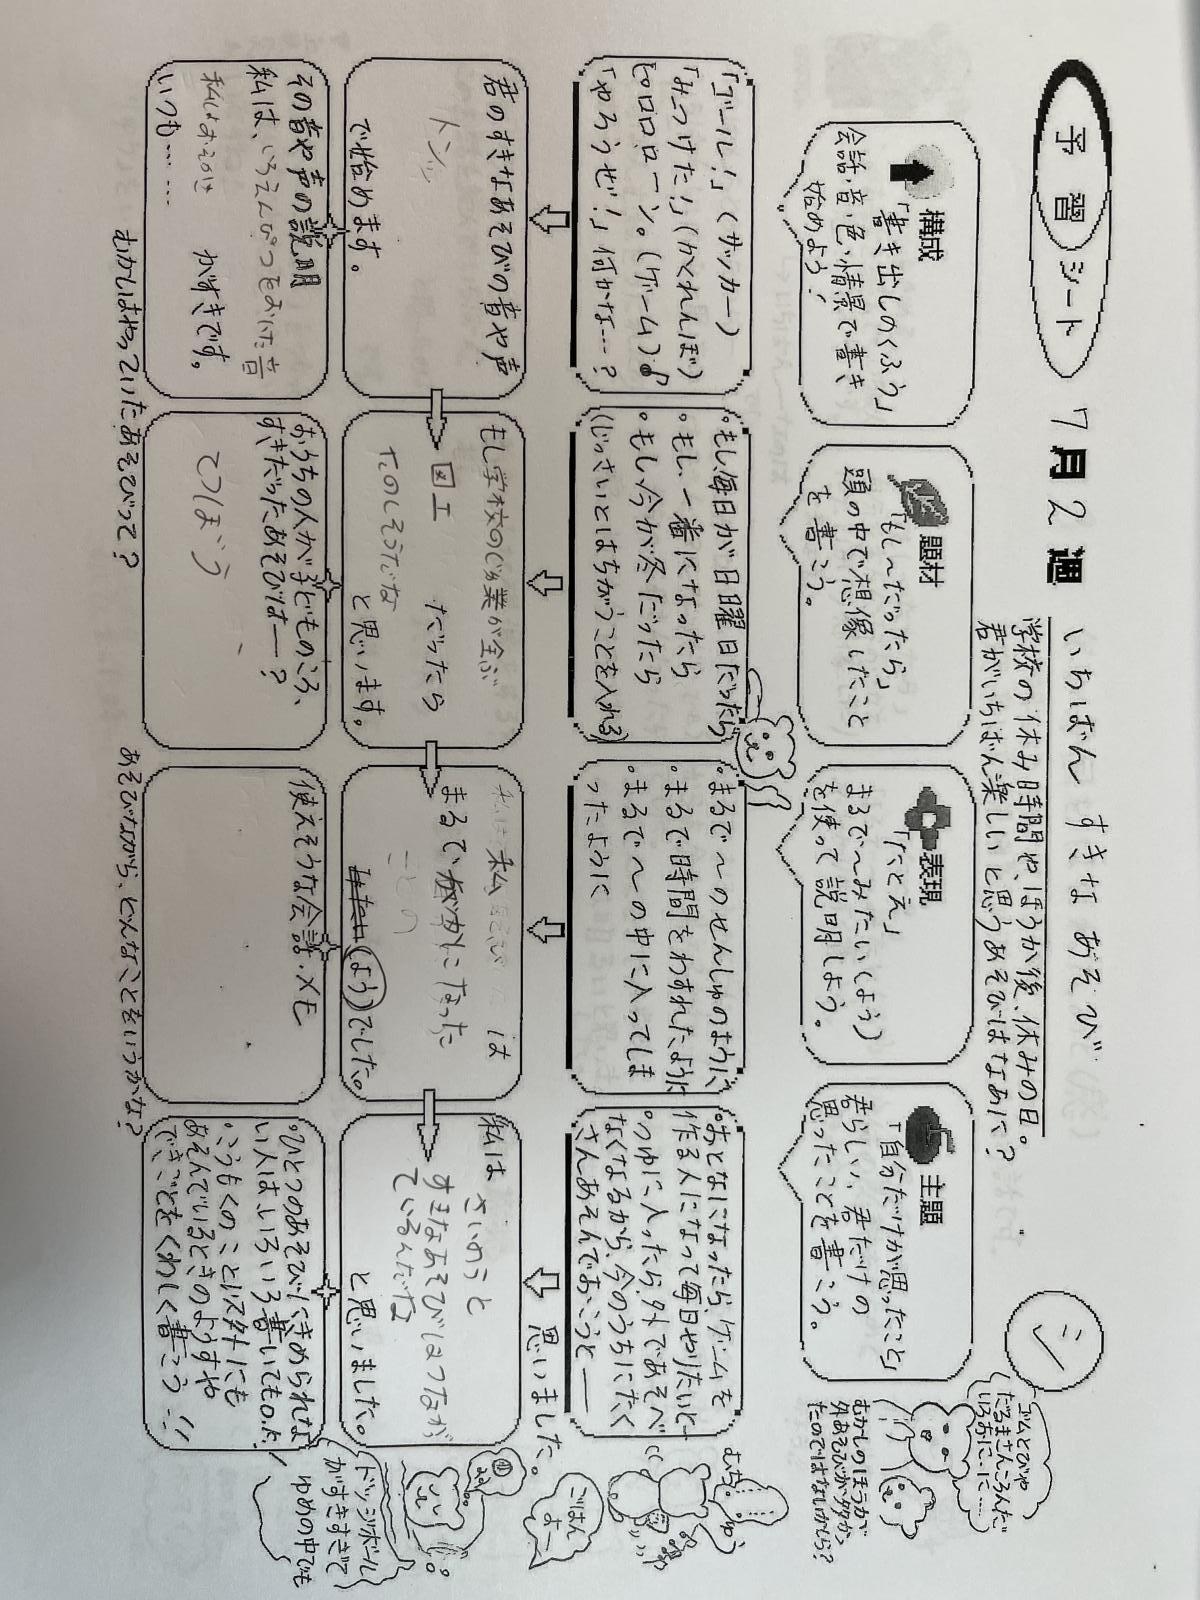 予習シート
7月2週
いちばん すきな あそび
学校の休み時間や、ほうか後、休みの日。
君がいちばん楽しいと思うあそびはなあに？
シ
ゴムとびや
だるまさんころんだ
いろおに…に……
むかしのほうが
外あそびが多かっ
たのではないかしら？
構成
「書き出しのくふう」
会話・音・色・情景で書き
始めよう！
題材
「もし〜だったら」
頭の中で想像したこと
を書こう。
表現
「たとえ」
まるで〜みたい（よう）
を使って説明しよう。
主題
「自分だけが思ったこと」
君らしい、君だけの
思ったことを書こう。
「ゴール！」（サッカー）
「みつけた！」（かくれんぼ）
ピロロローン。（ゲーム）♪
「やろうぜ！」何かな…？
。もし、毎日が日曜日だったら
。もし、一番になったら
。もし、今が冬だったら
（じっさいとはちがうことを入れる）
。まるで〜のせんしゅのように
。まるで時間をわすれたように
。まるで〜の中に入ってしま
ったように
。おとなになったら、ゲームを
作る人になって毎日やりたいと—
。つゆに入ったら、外であそべ
なくなるから、今のうちにたく
さんあそんでおこうと——
思いました。
君のすきなあそびの音や声
トンッ
で始めます。
もし学校のじゅ業が全ぶ
図工
だったら
たのしそうだな
と思います。
は
まるで
になった
ことの
(よう)でした。
私は
さいのうと
すきなあそびはつなが
ているんだな
と思いました。
その音や声の説明
私は、いろえんぴつをおいた音
がすきです。
いつも……
むかしはやっていたあそびって？
おうちの人が子どものころ、
すきだったあそびは——？
てつぼう
使えそうな会話・メモ
あそびながら、どんなことをいうかな？
。ひとつのあそびにきめられな
い人はいろいろ書いてもO.K！
。こうもくのこと以外にも
あそんでいるときのようすや
できごとをくわしく書こう！！
むちゅう
ごはん
よー
ドッジボール
がすきすぎて
ゆめの中でも